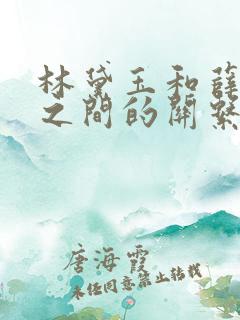 林黛玉和薛
之間的關繫
唐海霞
未经同意禁止转载